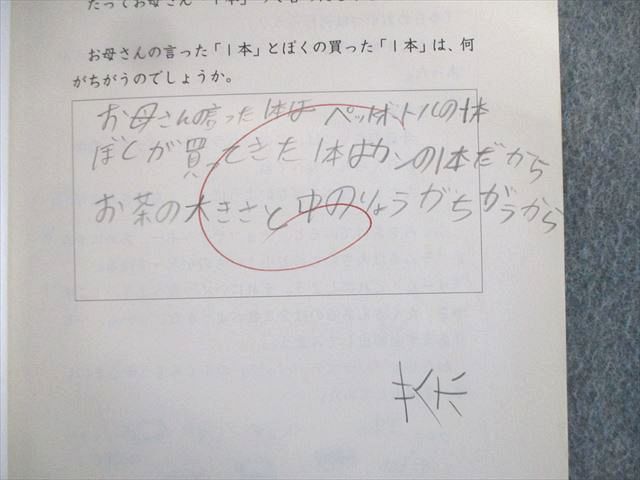 お母さんの言った「1本」とぼくの買った「1本」は、何
がちがうのでしょうか。
お母さんの言った1本はペットボトルの1本
ぼくが買ってきた1本はカンの1本だから
お茶の大きさと中のりょうがちがうから